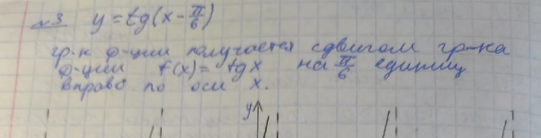 №3 y = tg(x - π/6)
гр-к ф-ции получается сдвигом гр-ка
ф-ции f(x) = tgx на π/6 единиц
вправо по оси x.
y